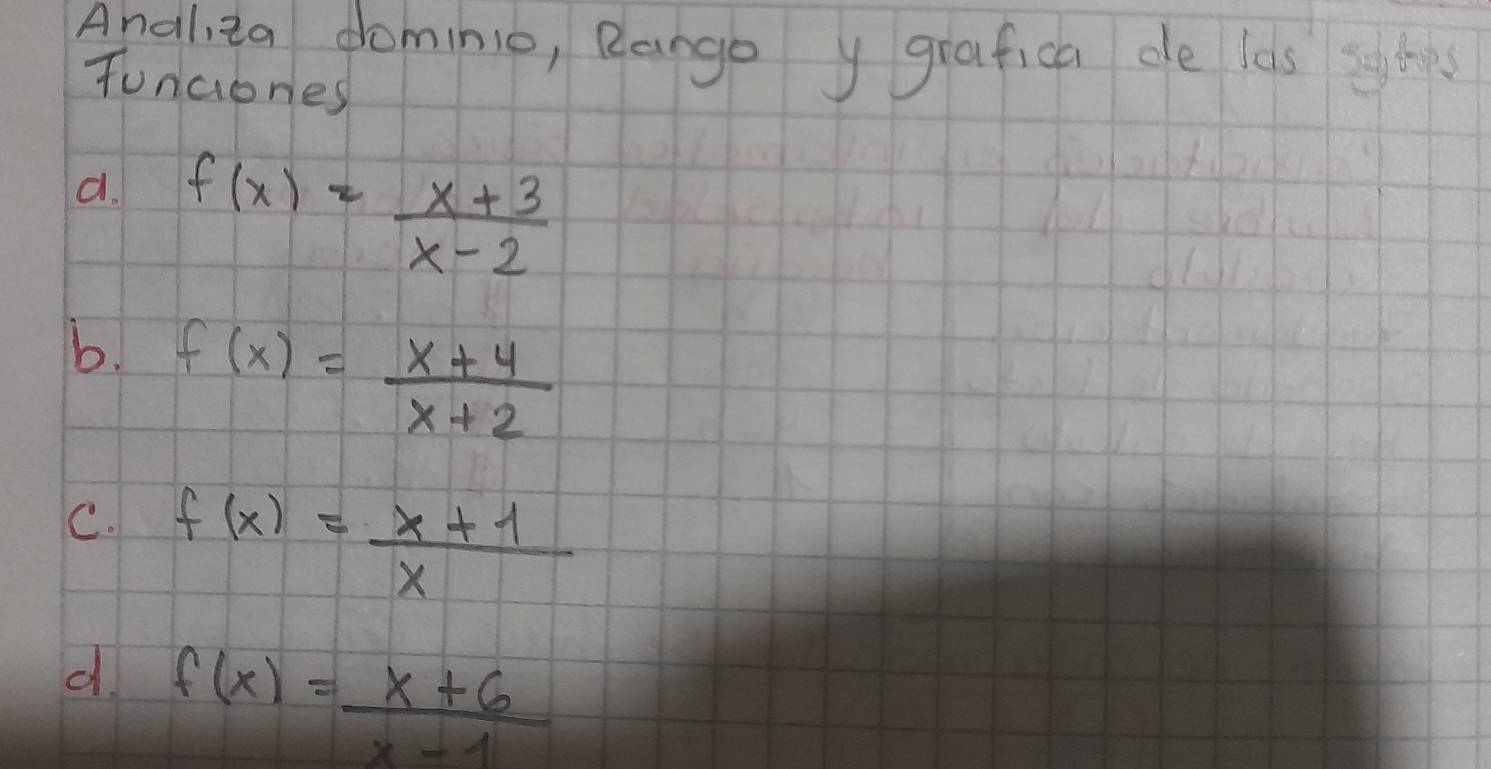 Analiza dominio, Rango y grafica de las
Funciones
a. f(x) = x+3
x-2
b. f(x) = x+4
x+2
c. f(x) = x+1
x
d. f(x) = x+6
x-1